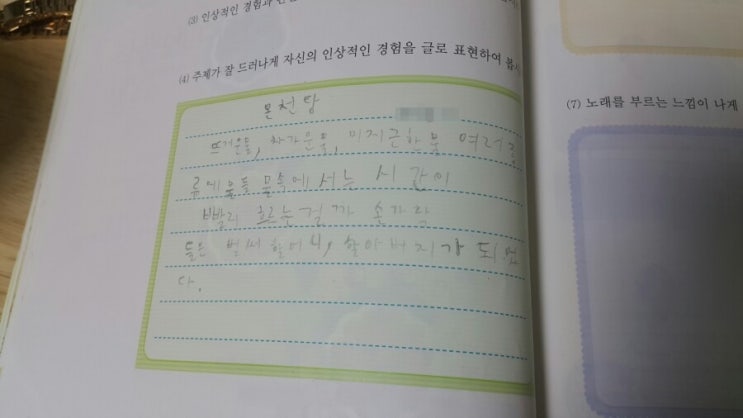 (3) 인상적인 경험과
(4) 주제가 잘 드러나게 자신의 인상적인 경험을 글로 표현하여 봅시
온천탕
뜨거운물, 차가운물, 미지근하물 여러종
류에 물들 물속에서는 시간이
빨리 흐르는걸까 손가락
들은 벌써 할머니, 할아버지가 되었
다.
(7) 노래를 부르는 느낌이 나게